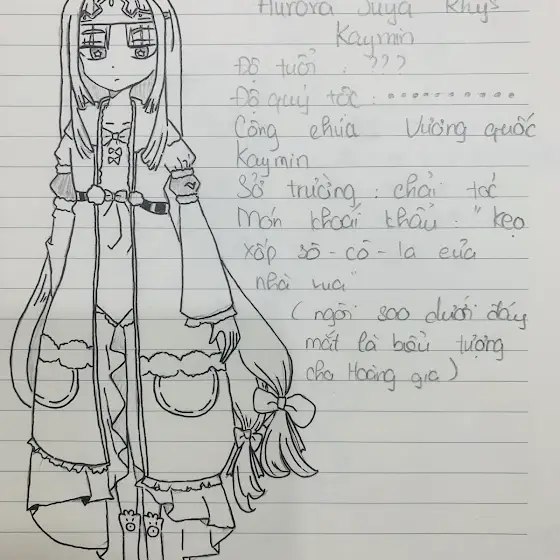 Aurora Suya Rhys
Kaymin
Độ tuổi : ???
Độ quý tộc : ••••••••••
Công chúa Vương quốc
Kaymin
Sở trường : chải tóc
Món khoái khẩu : " kẹo
xốp sô - cô - la của
nhà vua"
( ngôi sao dưới đáy
mắt là biểu tượng
cho Hoàng gia )